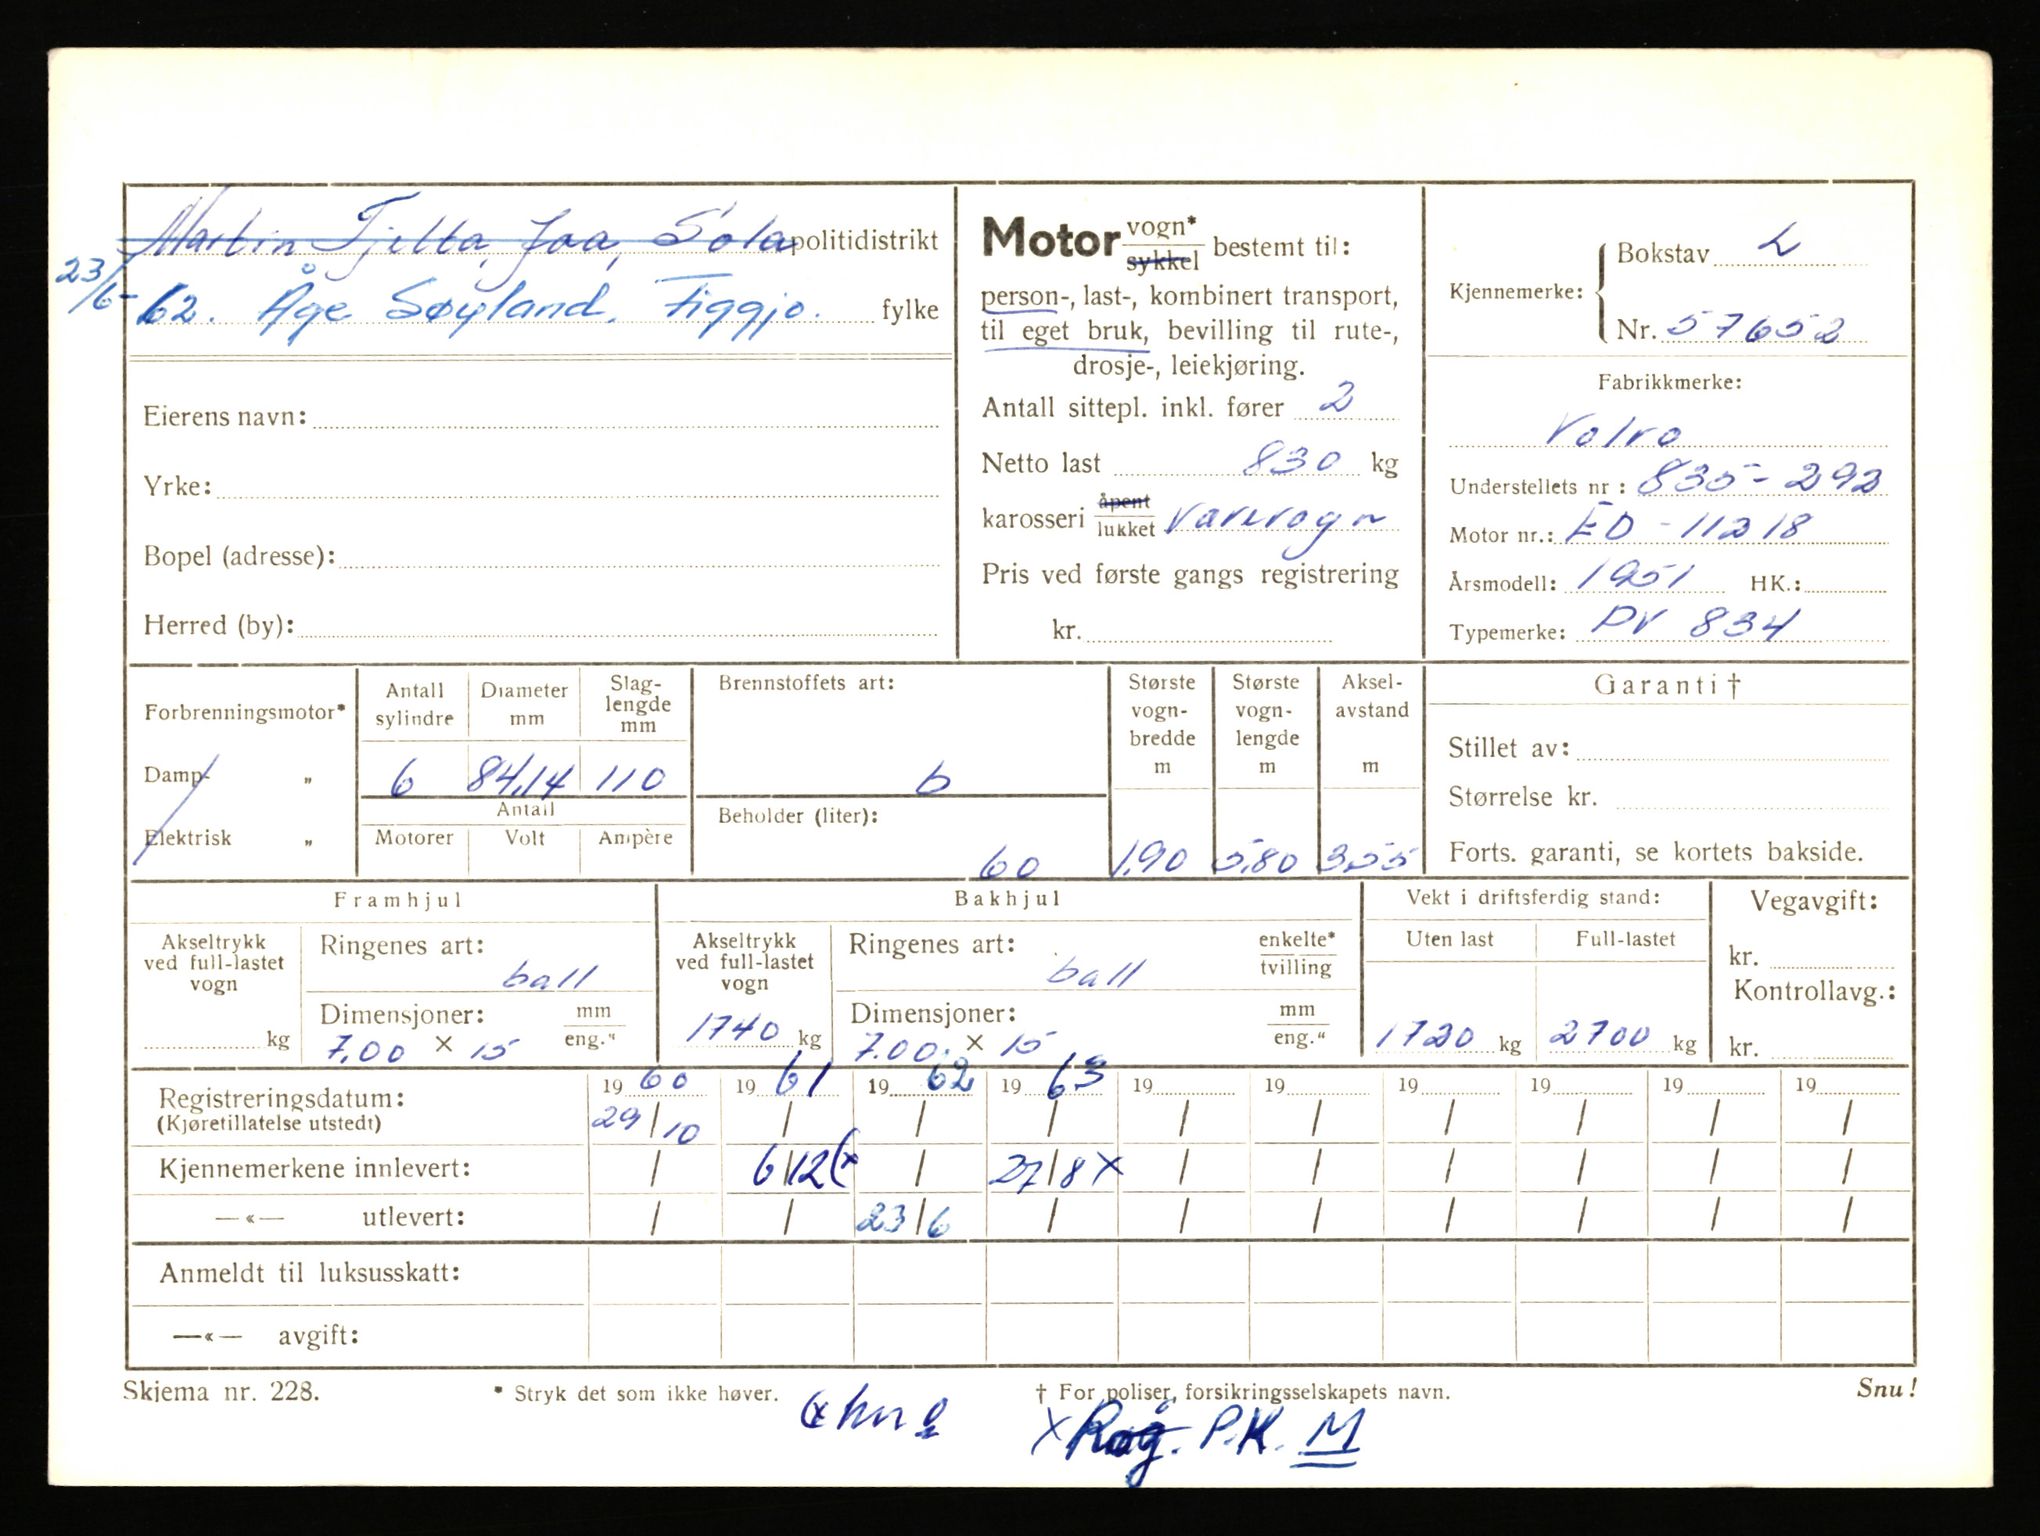 Martin Tjelta, Joa, Sola politidistrikt
23/6-62. Åge Søyland, Figgjo. fylke
Eierens navn:
Yrke:
Bopel (adresse):
Herred (by):
Motor vogn* sykkel bestemt til:
person-, last-, kombinert transport,
til eget bruk, bevilling til rute-,
drosje-, leiekjøring.
Antall sittepl. inkl. fører 2
Netto last 830 kg
karosseri åpent lukket varevogn
Pris ved første gangs registrering
kr.
Kjennemerke:
Bokstav L
Nr. 57652
Fabrikkmerke:
Volvo
Understellets nr: 835-292
Motor nr.: ED-11218
Årsmodell: 1951 HK.:
Typemerke: PV 834
Forbrenningsmotor*
Damp- „
Elektrisk „
Antall sylindre
Diameter mm
Slag-lengde mm
6 84,14 110
Antall
Motorer Volt Ampère
Brennstoffets art:
b
Beholder (liter):
60
Største vogn-bredde m
1.90
Største vogn-lengde m
5.80
Aksel-avstand m
3.55
Garanti †
Stillet av:
Størrelse kr.
Forts. garanti, se kortets bakside.
Framhjul
Akseltrykk ved full-lastet vogn
kg
Ringenes art:
ball
Dimensjoner: mm eng."
7.00 × 15
Bakhjul
Akseltrykk ved full-lastet vogn
1740 kg
Ringenes art: enkelte* tvilling
ball
Dimensjoner: mm eng."
7.00 × 15
Vekt i driftsferdig stand:
Uten last Full-lastet
1720 kg 2700 kg
Vegavgift:
kr.
Kontrollavg.:
kr.
19 60 19 61 19 62 19 63 19 19 19 19 19 19
Registreringsdatum:
(Kjøretillatelse utstedt)
29/10 / / / / / / / / /
Kjennemerkene innlevert: / 6/12 (x / 27/8 x / / / / / /
—«— utlevert: / / 23/6 / / / / / / /
Anmeldt til luksusskatt:
—«— avgift:
Skjema nr. 228.
* Stryk det som ikke høver.
† For poliser, forsikringsselskapets navn.
Snu!
x Rog. P.K. M